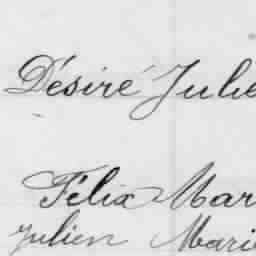 Désiré Julie
Félix Mar
Julien Marie